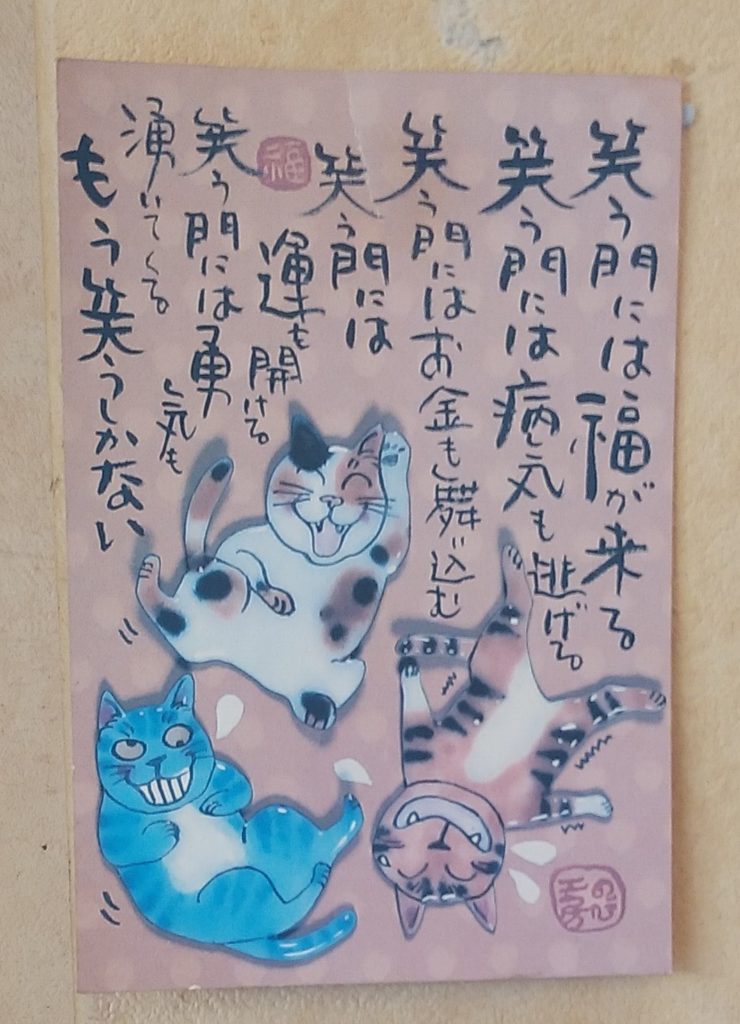 笑う門には福が来る
笑う門には病気も逃げる
笑う門にはお金も舞い込む
笑う門には
運も開ける
笑う門には勇気も
湧いてくる
もう笑うしかない
福